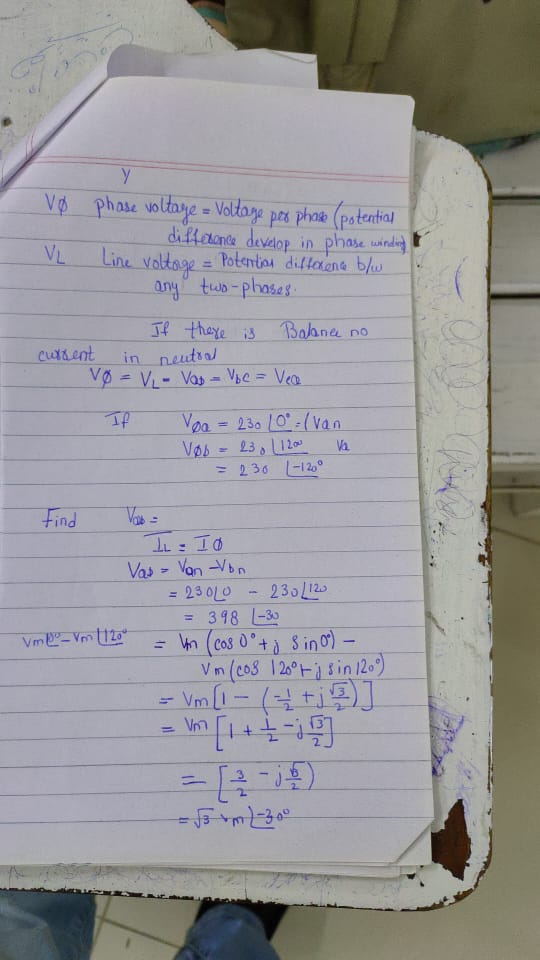 Y
VØ phase voltage = Voltage per phase (potential
difference develop in phase winding)
VL Line voltage = Potential difference b/w
any two-phases.
If there is Balance no
current in neutral
VØ = VL = Vab = Vbc = Vca
If Vøa = 230 ∠0° = (Van
Vøb = 230 ∠120 Va
= 230 ∠-120°
Find Vab =
IL = IØ
Vab = Van - Vbn
= 230∠0 - 230∠120
= 398 ∠-30
Vm∠0° - Vm∠120° = Vm (cos 0° + j sin 0°) -
Vm (cos 120° + j sin 120°)
= Vm [1 - (-1/2 + j √3/2)]
= Vm [1 + 1/2 - j √3/2]
= [3/2 - j √3/2)
= √3 Vm ∠-30°